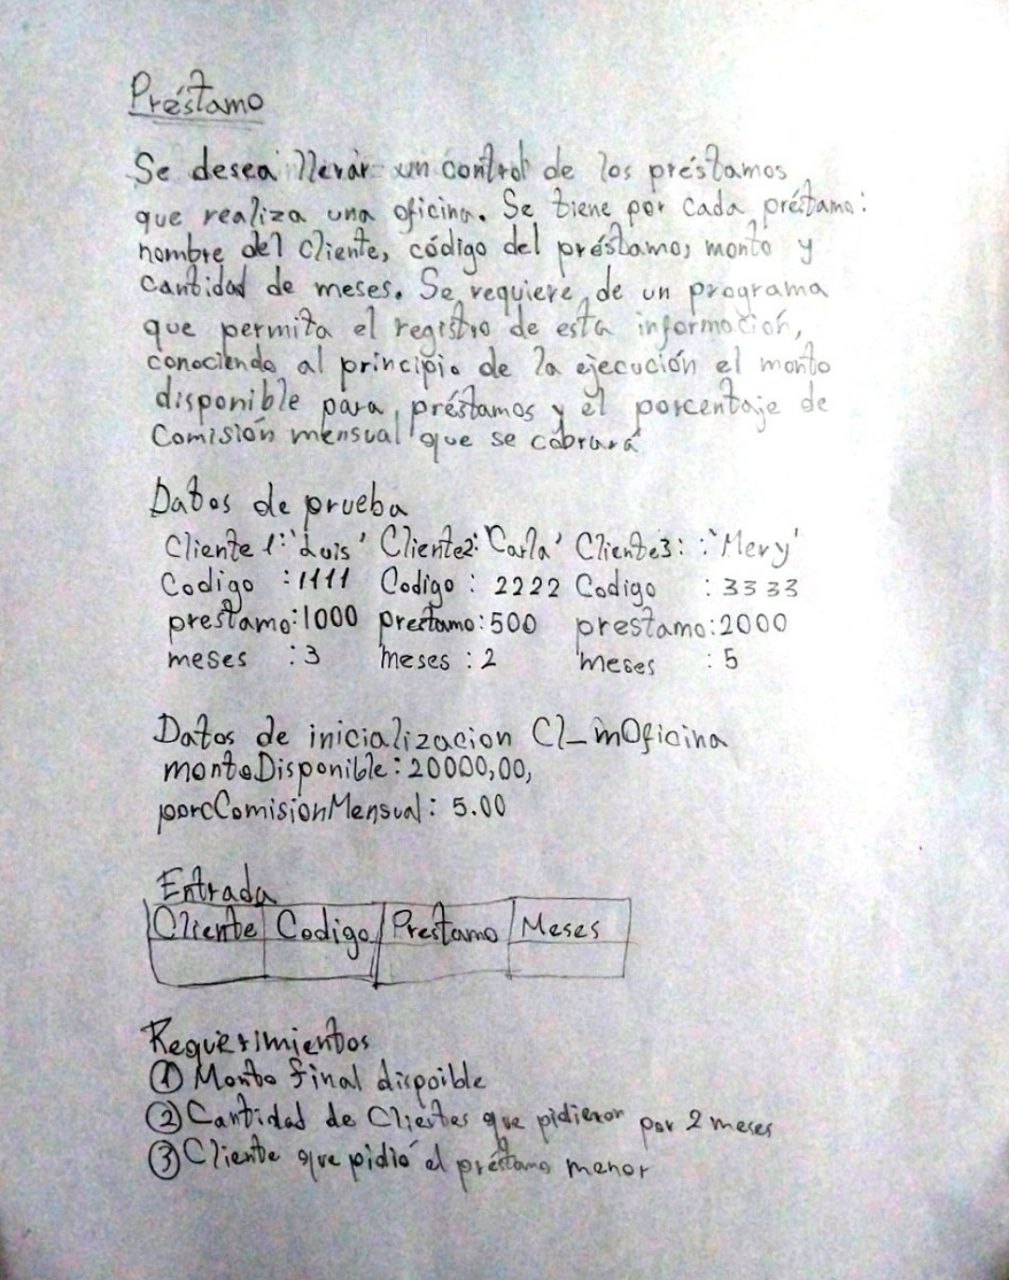 Préstamo
Se desea llevar un control de los préstamos
que realiza una oficina. Se tiene por cada préstamo:
nombre del Cliente, código del préstamo, monto y
cantidad de meses. Se requiere de un programa
que permita el registro de esta información,
conociendo al principio de la ejecución el monto
disponible para préstamos y el porcentaje de
Comisión mensual que se cobrará
Datos de prueba
Cliente 1: 'Luis' Cliente2: 'Carla' Cliente3: :'Mery'
Codigo :1111 Codigo : 2222 Codigo : 3333
prestamo:1000 prestamo:500 prestamo:2000
meses :3 meses : 2 meses : 5
Datos de inicializacion Cl_mOficina
montoDisponible: 20000,00,
porcComisionMensual: 5.00
Entrada
Cliente Codigo Prestamo Meses
Requerimientos
① Monto final dispoible
② Cantidad de Clientes que pidieron por 2 meses
③ Cliente que pidió el préstamo menor